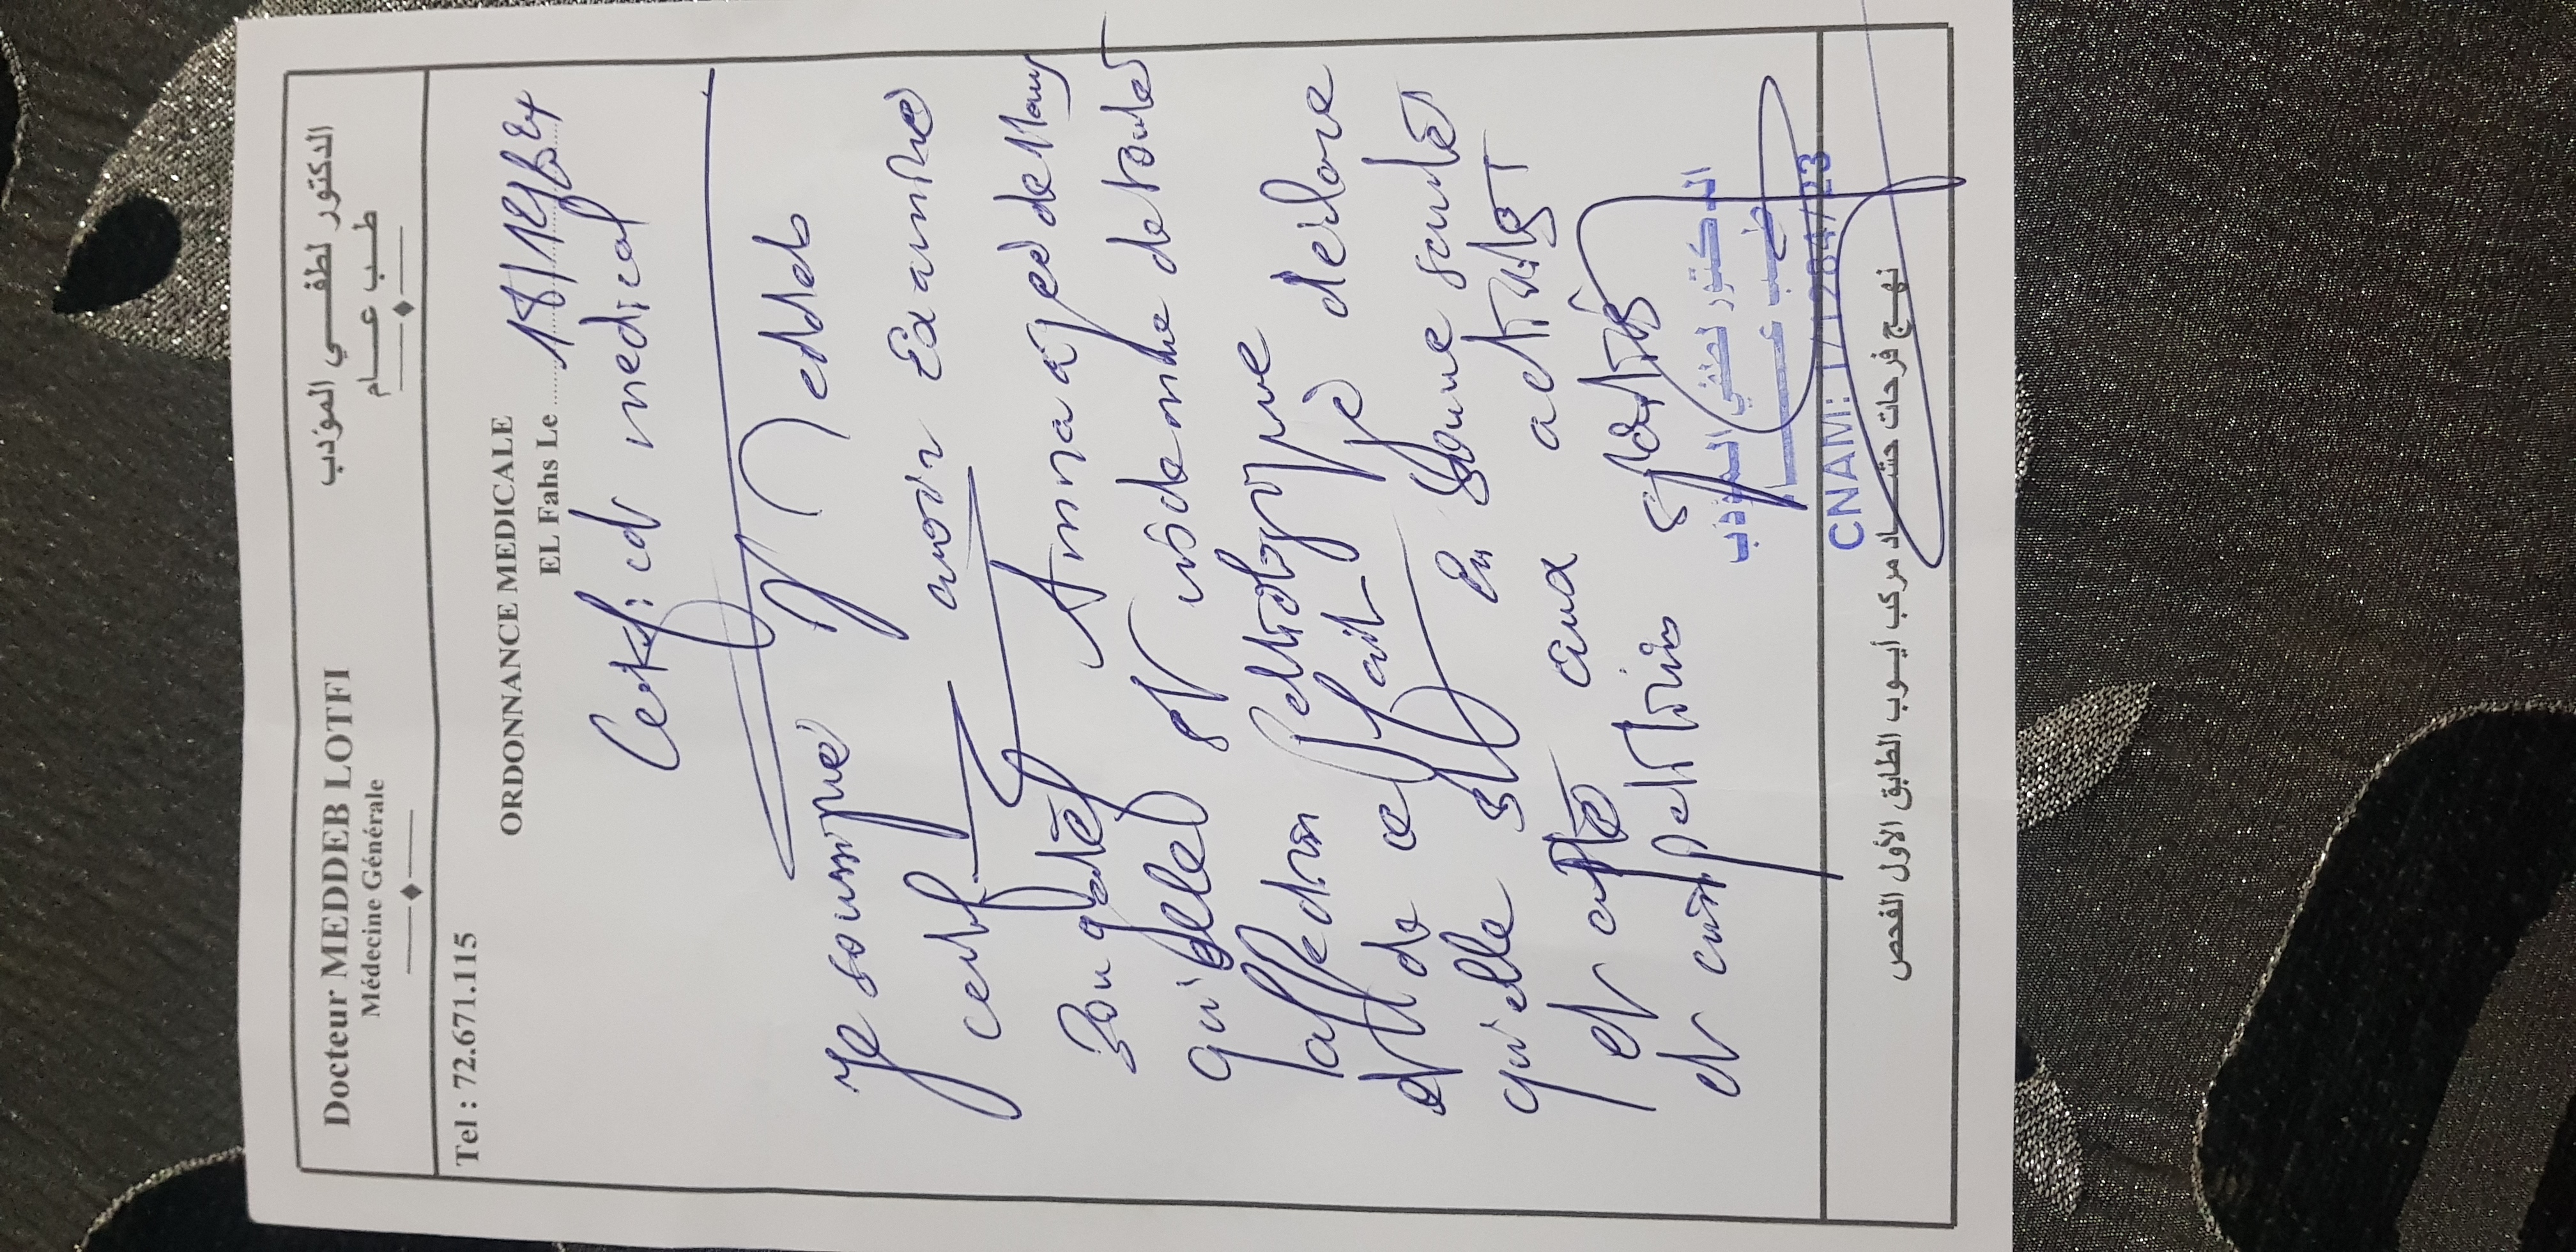 Docteur MEDDEB LOTFI
Médecine Générale
الدكتور لطفي المؤدب
طب عام
Tel : 72.671.115
ORDONNANCE MEDICALE
EL Fahs Le 18/12/2024
Certificat medical
Je soussigné Dr Meddeb
certifie avoir Examiné
Amna agée de 11 ans
qu'elle est indemne de toutes
affection
et de ce fait je déclare
qu'elle est en bonne santé
et apte aux activités
et compétitions sportives
الدكتور لطفي المؤدب
طب عام
CNAM: 1/12841/23
نهج فرحات حشاد مركب أيوب الطابق الأول الفحص